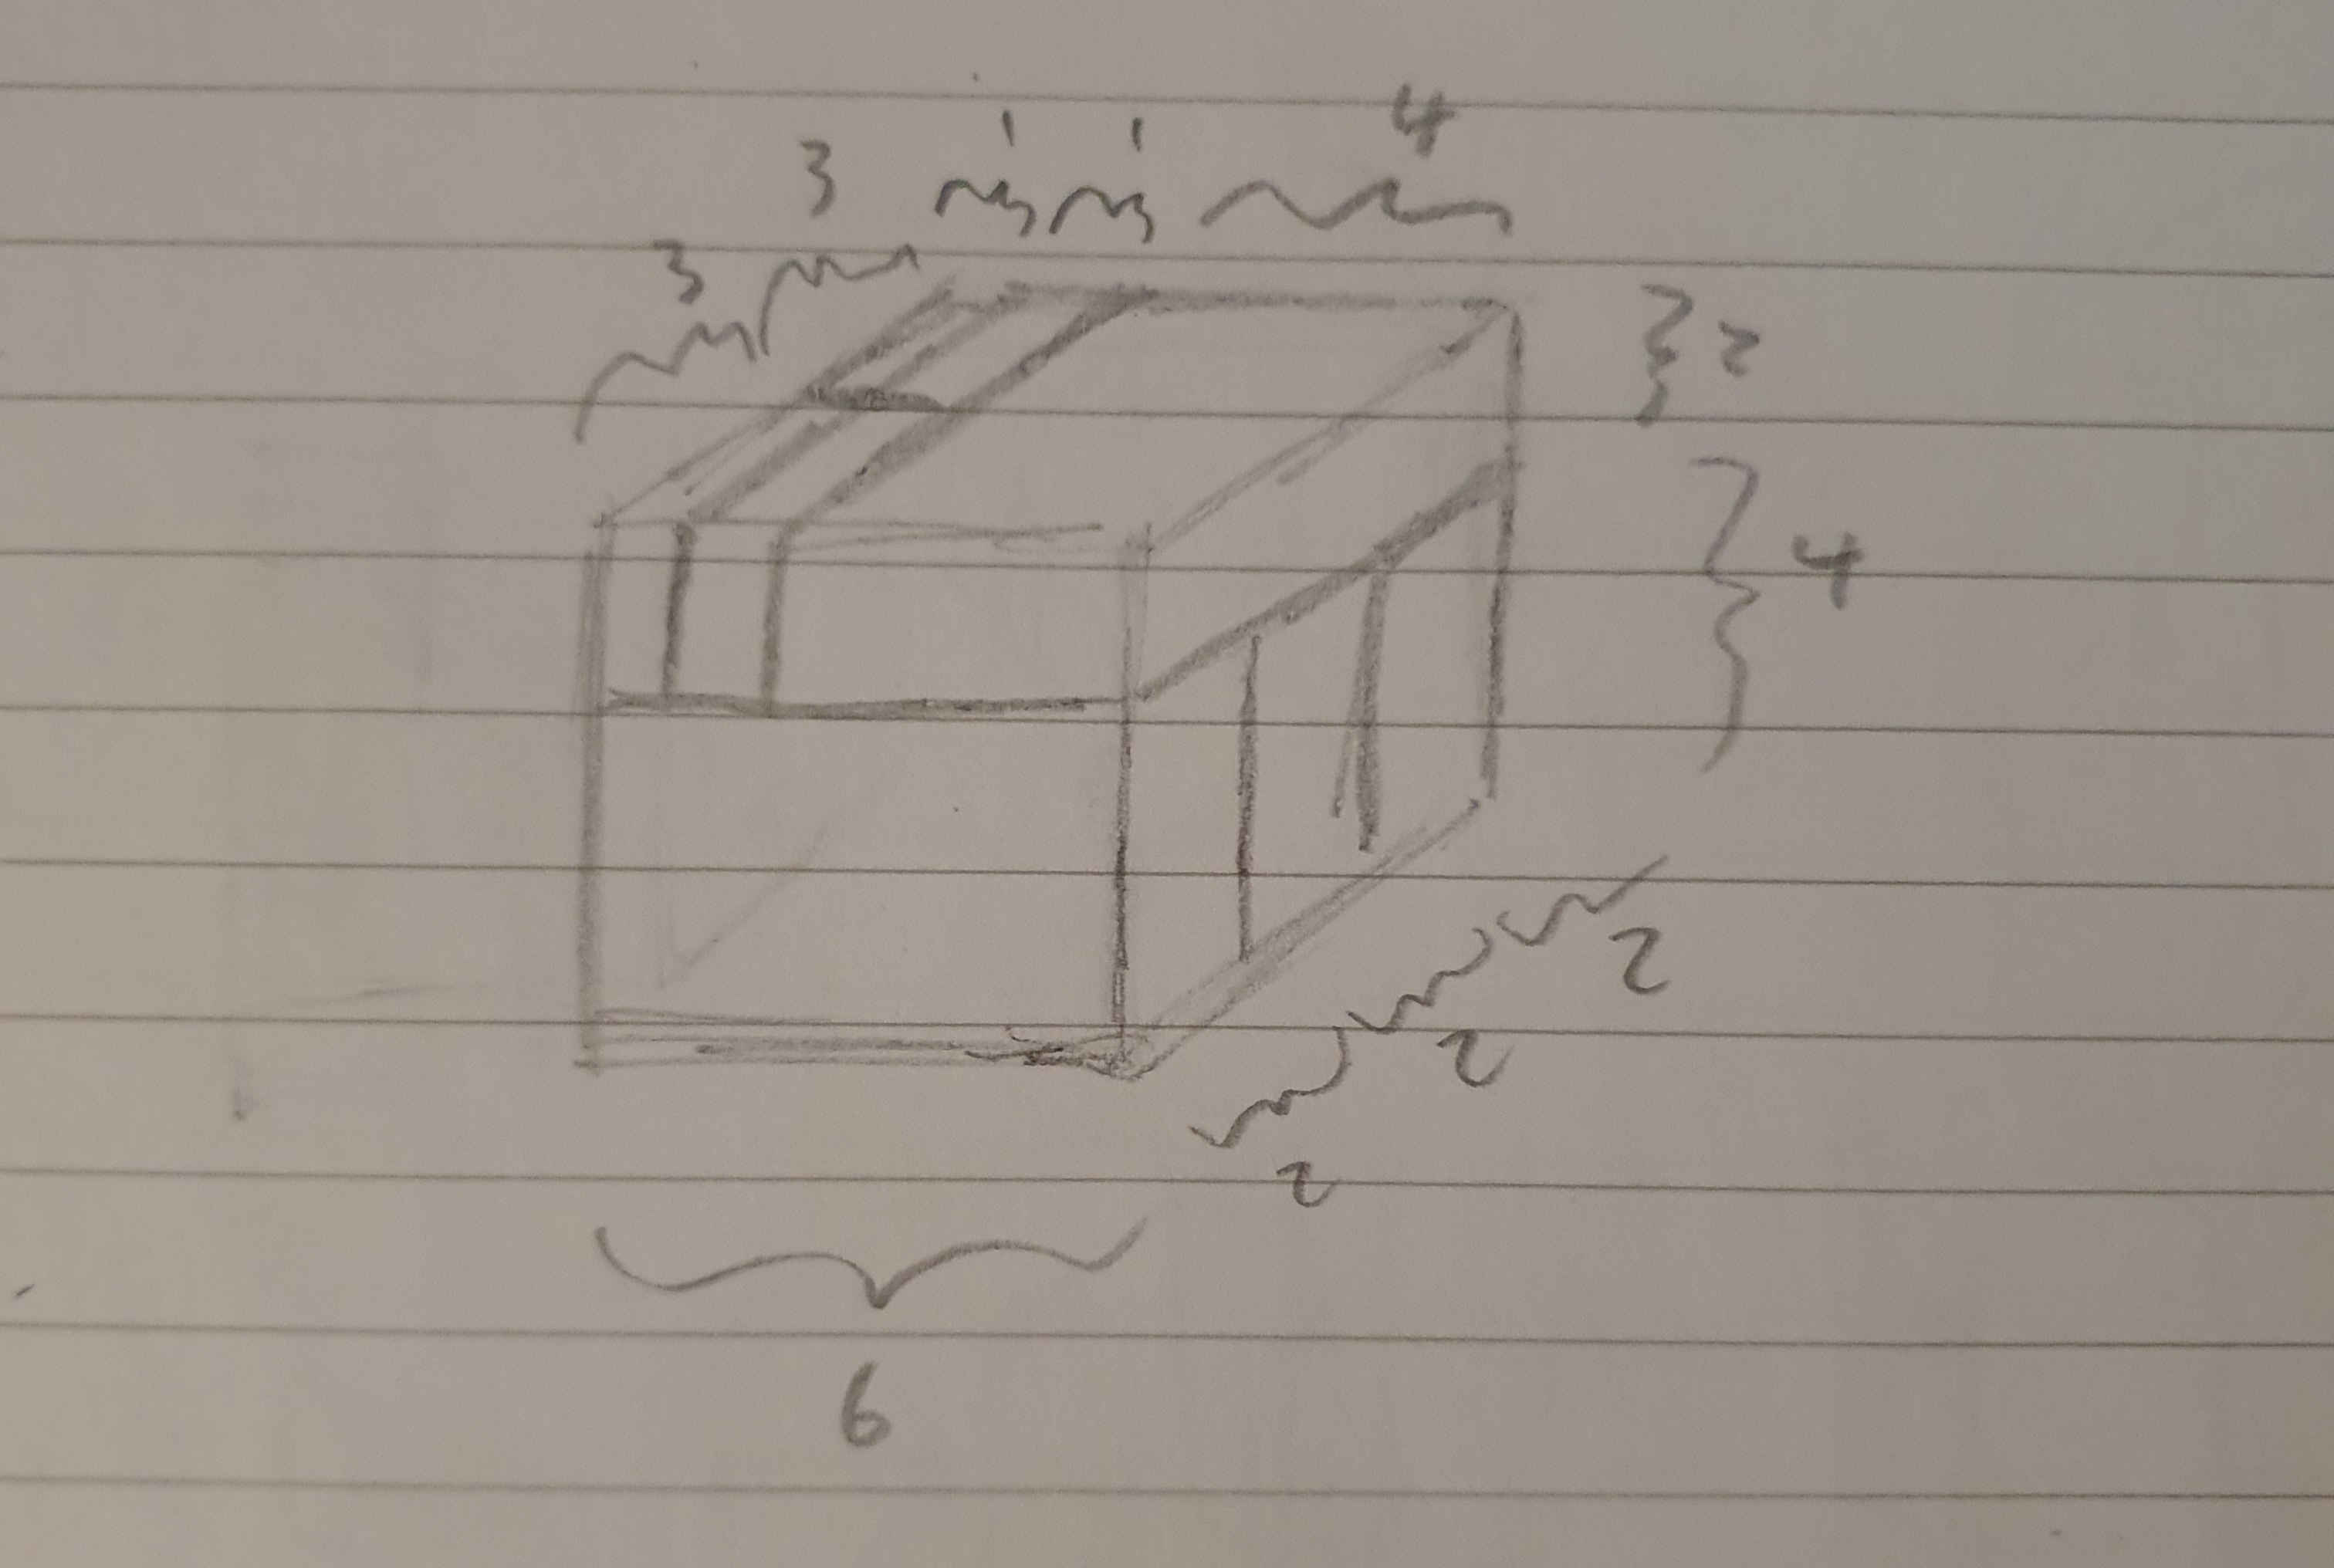 3 1 1 4
3
2
4
2
2
2
6